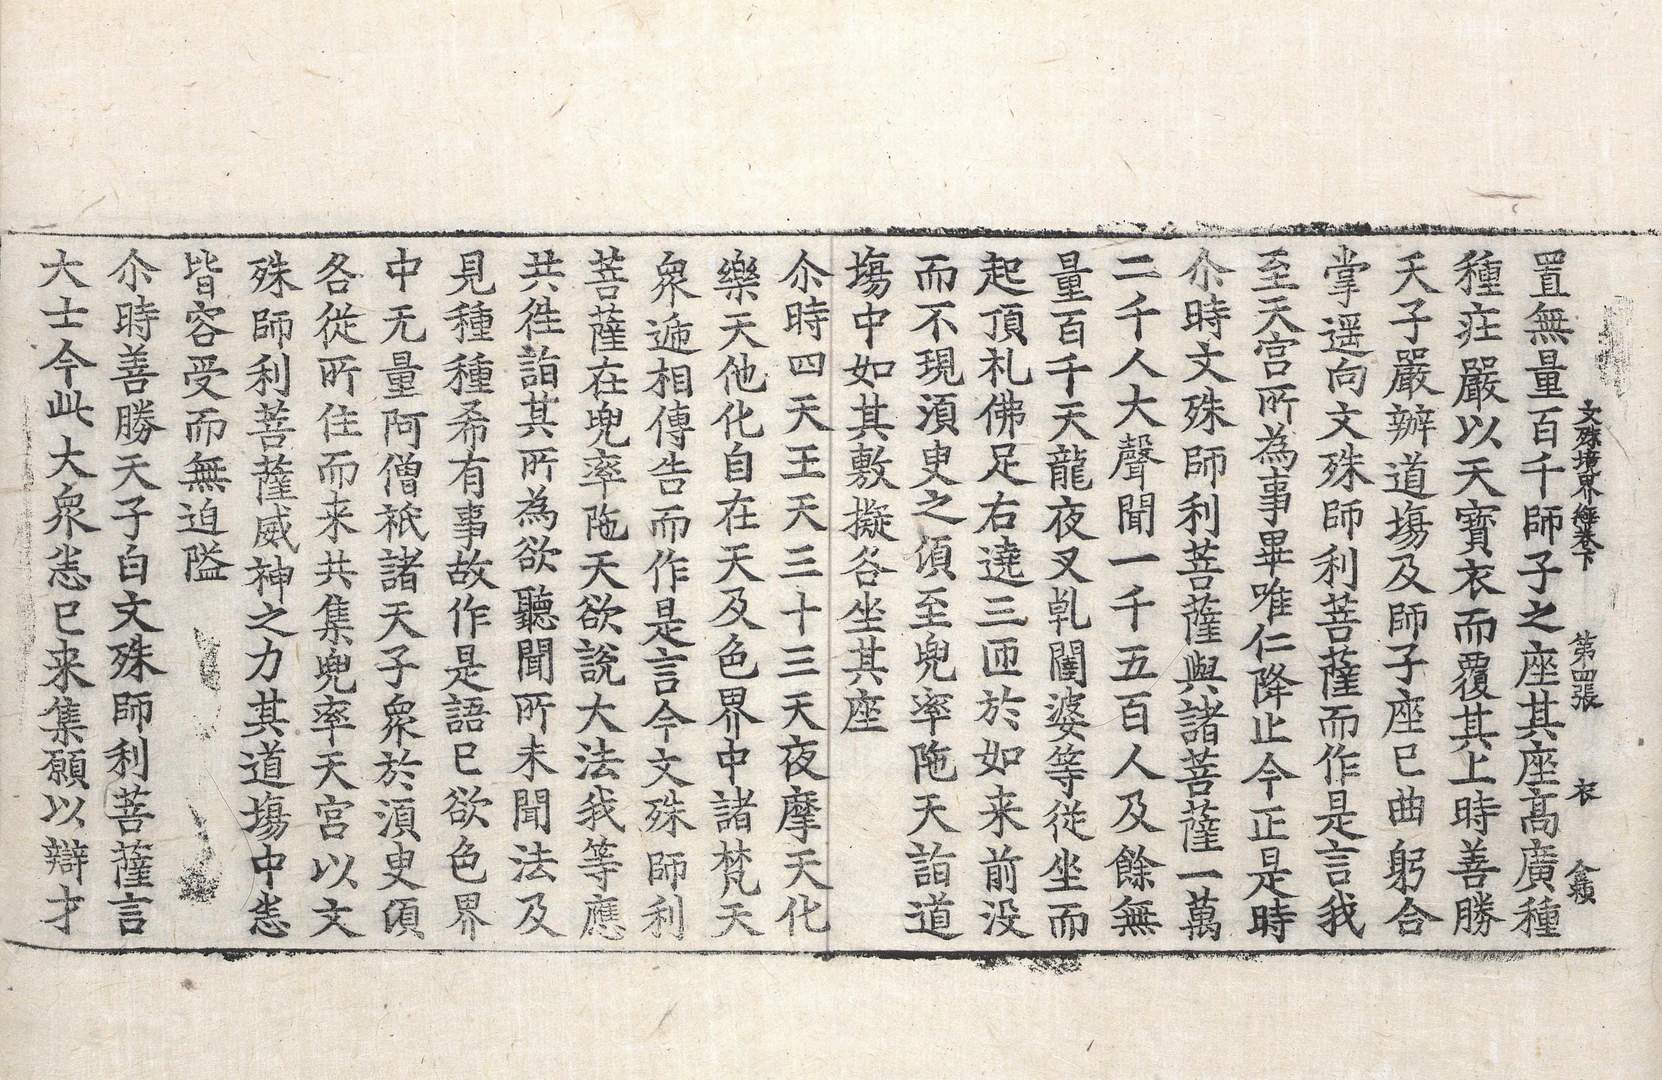 文殊境界經卷下 第四張 衣
置無量百千師子之座其座髙廣種
種庄嚴以天寶衣而覆其上時善勝
天子嚴辦道塲及師子座已曲躬合
掌遥向文殊師利菩薩而作是言我
至天宫所為事畢唯仁降止今正是時
尒時文殊師利菩薩與諸菩薩一萬
二千人大聲聞一千五百人及餘無
量百千天龍夜叉乹闥婆等從坐而
起頂礼佛足右遶三匝於如来前没
而不現湏臾之頃至兜率陁天詣道
塲中如其敷擬各坐其座
尒時四天王天三十三天夜摩天化
樂天他化自在天及色界中諸梵天
衆遞相傳告而作是言今文殊師利
菩薩在兜率陁天欲說大法我等應
共徃詣其所為欲聽聞所未聞法及
見種種希有事故作是語已欲色界
中无量阿僧祇諸天子衆於湏臾頃
各從所住而来共集兜率天宫以文
殊師利菩薩威神之力其道塲中悉
皆容受而無迫隘
尒時善勝天子白文殊師利菩薩言
大士今此大衆悉已来集願以辯才